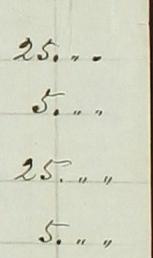 25. „ „
5. „ „
25. „ „
5. „ „